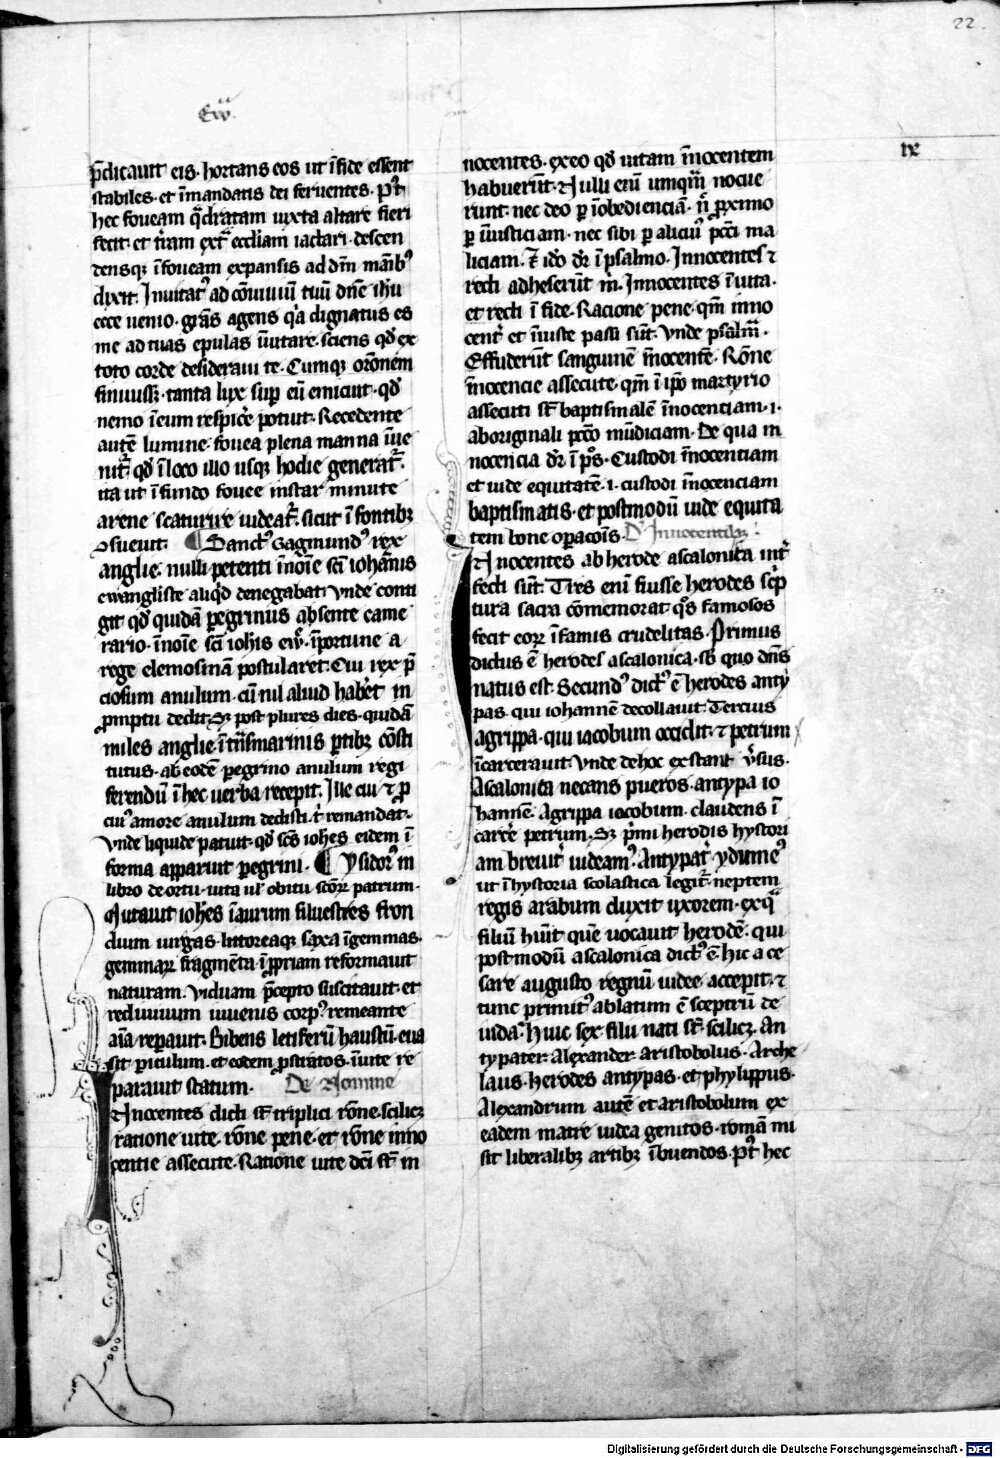 22
Ew̄
ix
p̄dicauit eis. hortans eos ut ī fide essent
stabiles. et ī mandatis dei feruentes. Pꝰt
hec foueam q̄dratam iuxta altare fieri
fecit. et t̄ram ext̄ eccl̄iam iactari. descen
densqꝫ ī foueam expansis ad dn̄m manibꝰ
dixit. Inuitatꝰ ad cōuiuiū tuū dn̄e ih̄u
ecce uenio. gr̄as agens q̄a dignatus es
me ad tuas epulas īuitare. sciens qd̄ ex
toto corde desideraui te. Cumqꝫ or̄onem
finiuissꝫ. tanta lux sup̄ eū emicuit. qd̄
nemo ī eum respic̄e potuit. Recedente
autē lumine. fouea plena manna īue
nit̄. qd̄ ī loco illo usqꝫ hodie generat̄.
ita ut ī fundo fouee instar minute
arene scaturire uideat̄. sicut ī fontibꝫ
ↄsueuit. ¶ Sanctꝰ Eagmundꝰ rex
anglie. nulli petenti ī noīe sc̄i ioh̄annis
ewangliste aliqd̄ denegabat. vnde conti
git qd̄ quidā pegrinus absente came
rario. ī noīe sc̄i ioh̄is ew̄. īportune a
rege elemosinā postularet. Cui rex p̄
ciosum anulum. cū nil aliud hab̄et in
pmptu dedit. Sꝫ post plures dies. quidā
miles anglie ī tn̄smarinis ptibꝫ cōsti
tutus. ab eodē pegrino anulum regi
ferendū ī hec uerba recepit. Ille cui ⁊ p
cuiꝰ amore anulum dedisti. t̄ remandat.
vnde liquide patuit. qd̄ sc̄s ioh̄es eidem ī
forma apparuit pegrini. ¶ Ysidorꝰ in
libro de ortu. uita ul̄ obitu sc̄oꝝ patrum.
Mutauit ioh̄es ī aurum siluestres fron
dium uirgas. littoreaqꝫ saxa ī gemmas.
gemmaꝝ fragmēta ī ppriam reformauit
naturam. Viduam p̄cepto suscitauit. et
rediuiuum iuuenis corpꝰ. remeante
aīa. repauit. Bibens letiferū haustū. eua
sit. piculum. et eodem pstratos. ī uite re
parauit statum. De Nomine
INnocentes dicti st̄ triplici rōne. scilicꝫ
ratione uite. rōne pene. et rōne inno
centie assecute. Ratione uite dc̄i st̄ in
nocentes. ex eo qd̄ uitam īnocentem
habuerūt. Nulli enī umqm̄ nocue
runt. nec deo p īobedienciā. n̄ pximo
p īiusticiam. nec sibi p alicuiꝰ pcc̄i ma
liciam. Et id̄o dr̄ ī psalmo. Innocentes ⁊
recti adheserūt m̄. Innocentes ī uita.
et recti ī fide. Racione pene. qm̄ inno
cent̄ et īiuste passi sūt. Vnde psalm̄.
Effuderūt sanguinē īnocentē. Rōne
īnocencie assecute. qm̄ ī ip̄o martyrio
assecuti st̄ baptismalē īnocenciam. i.
ab originali pcc̄o mūdiciam. De qua in
nocencia dr̄ ī ps̄. Custodi īnocentiam
et uide equitatē. i. custodi īnocenciam
baptismatis. et postmodū uide equita
tem bone opacōis. Dꝰ Innocentibꝫ.
INnocentes ab herode ascalonita int̄
fecti sūt. Tres enī fuisse herodes sc̄p
tura sacra cōmemorat. qꝰs famosos
fecit eoꝝ īfamis crudelitas. Primus
dictus ē herodes ascalonica. sb̄ quo dn̄s
natus est. Secundꝰ dictꝰ ē herodes anty
pas. qui iohannē decollauit. Tercius
agrippa. qui iacobum occidit. ⁊ petrum
īcarcerauit. Vnde de hoc exstant v̄sus.
Ascalonita necans pueros. antypa io
hannē. Agrippa iacobum. claudens ī
carc̄e petrum. Sꝫ p̄mi herodis hystori
am breuit̄ uideamꝰ. Antypat̄ ydumeꝰ
ut ī hystoria scolastica legit̄. neptem
regis arabum duxit uxorem. ex q̄
filiū hūit quē uocauit herodē. qui
postmodū ascalonica dictꝰ ē. hic a ce
sare augusto regnū iudee accepit. ⁊
tunc primitꝰ ablatum ē sceptrū de
iuda. Huic sex filii nati st̄. scilicꝫ. An
typater. Alexander. aristobolus. Arche
laus. herodes antypas. et phylippus.
Alexandrum autē et aristobolum ex
eadem matre iudea genitos. romā mi
sit liberalibꝫ artibꝫ ībuendos. Pꝰt hec
Digitalisierung gefördert durch die Deutsche Forschungsgemeinschaft - DFG